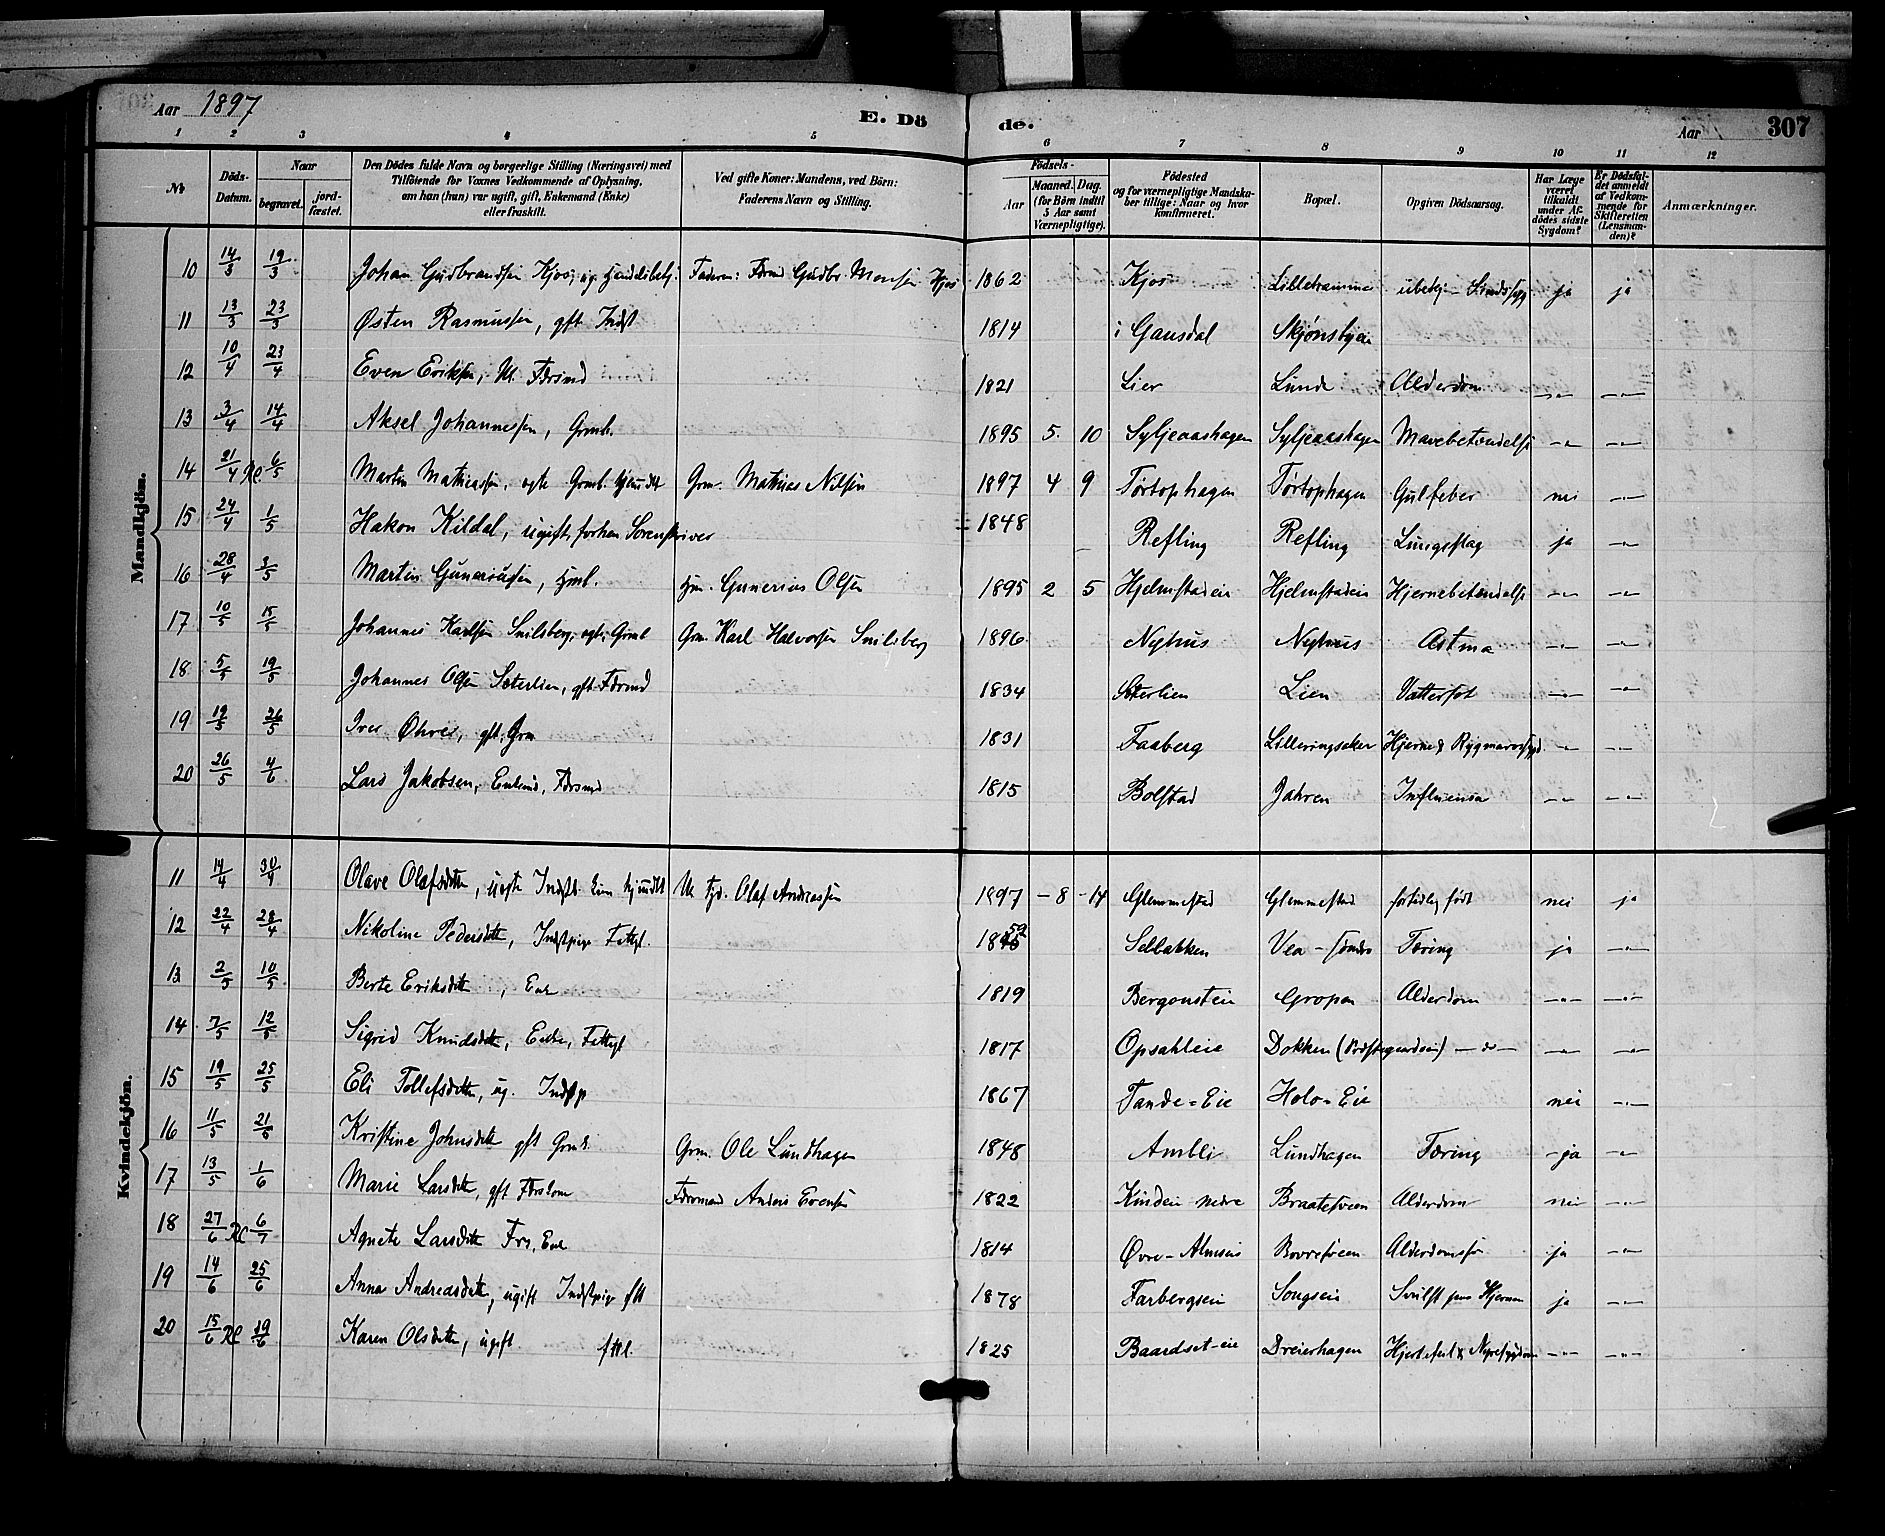 Aar 1897
E. Dö
de.
Aar
307
1 2 3 4 5 6 7 8 9 10 11 12
No
Döds-Datum.
Naar
begravet.
jord-fæstet.
Den Dödes fulde Navn og borgerlige Stilling (Næringsvei) med
Tilföiende for Voxnes Vedkommende af Oplysning,
om han (hun) var ugift, gift, Enkemand (Enke)
eller fraskilt.
Ved gifte Koner: Mandens, ved Börn:
Faderens Navn og Stilling.
Födsels-
Aar
Maaned. Dag.
(for Börn indtil
5 Aar samt
Værnepligtige).
Födested
og for værnepligtige Mandska-
ber tillige: Naar og hvor
konfirmeret.
Bopæl.
Opgiven Dödsaarsag.
Har Læge
været
tilkaldt
under Af-
dödes sidste
Sygdom?
Er Dödsfal-
det anmeldt
af Vedkom-
mende for
Skifteretten
(Lensman-
den)?
Anmærkninger.
Mandkjön.
10 14/3 19/3 Johan Gudbrandsen Kjos, ug. Faderen: Gudbr. Monsen Kjos 1862 Kjos Lillehramme ubekj. ja ja
11 13/3 23/3 Østen Rasmussen, gft Indst 1814 i Gausdal Skjønsbyen
12 10/4 23/4 Even Eriksen, Fdrsmd 1821 Lier Lunde Alderdom —"— —"—
13 3/4 14/4 Aksel Johannessen, Grmb. 1895 5. 10 Syljeaashagen Syljeaashagen Mavebetændelse —"— —"—
14 21/4 6/5 Martin Mathiassen, egte Grmb. hjemdt Grm. Mathias Nilsen 1897 4 9 Tørtophagen Tørtophagen Gulfeber nei —"—
15 24/4 1/5 Hakon Kildal, ugift, forhen Sorenskriver 1848 Refling Refling Lungeslag ja —"—
16 28/4 3/5 Martin Gunerius​sen, Hmb. Hm. Gunerius Olsen 1895 2 5 Hjelmstadeie Hjelmstadeie Hjernebetændelse —"— —"—
17 10/5 15/5 Johannes Karlsen Snilsberg, egte Grmb Grm. Karl Halvorsen Snilsberg 1896 Nyhus Nyhus Astma —"— —"—
18 5/5 19/5 Johannes Olsen Sæterlien, gft Fdrmd 1834 Sæterlien Lien Vattersot —"— —"—
19 19/5 26/5 Iver Øhren, gft. Grm 1831 Faaberg Lilleringsaker Hjerne & Rygmarvssygd —"— —"—
20 26/5 4/6 Lars Jakobsen, Enkemd, Fdrsmd 1815 Bolstad Jahren Influensa —"— —"—
Kvindekjön.
11 14/4 30/4 Olave Olafsdtr, uegte hjemdbt Olaf Andreassen 1897 – 8 – 14 Glemmestad Glemmestad fortidlig født nei ja
12 22/4 28/4 Nikoline Pedersdtr, Indstpige Fattigl. 1859 Selbakken Vea - søndre Tæring ja —"—
13 2/5 10/5 Berte Eriksdtr, Enke 1819 Bergonsteie Gropen Alderdom —"— —"—
14 7/5 12/5 Sigrid Knudsdtr, Enke, Fattigl 1817 Opsahleie Dokken (Præstegaardseie) —"— —"— —"—
15 19/5 25/5 Eli Tollefsdtr, ug. Indstp 1867 Tande-Eie Holo-Eie nei —"—
16 11/5 21/5 Kristine Johnsdtr gft Grmk. Grm. Ole Lundhagen 1848 Ambli Lundhagen Tæring – ja —"—
17 13/5 1/6 Marie Larsdtr, gft Fdrskone Fdrmand Anders Evensen 1822 Kindeie nedre Braatesveen Alderdom nei —"—
18 27/6 6/7 Agnete Larsdtr Enke 1814 Øvre - Almseie Bovresveen ja —"—
19 14/6 25/6 Anna Andreasdtr, ugift Indstpige 1878 Farbergseie Songseie Svulst paa Hjernen ja —"—
20 15/6 19/6 Karen Olsdtr, ugift fttl. 1825 Baardset-eie Dreierhagen Hjertefeil & Nyresygdom —"— —"—